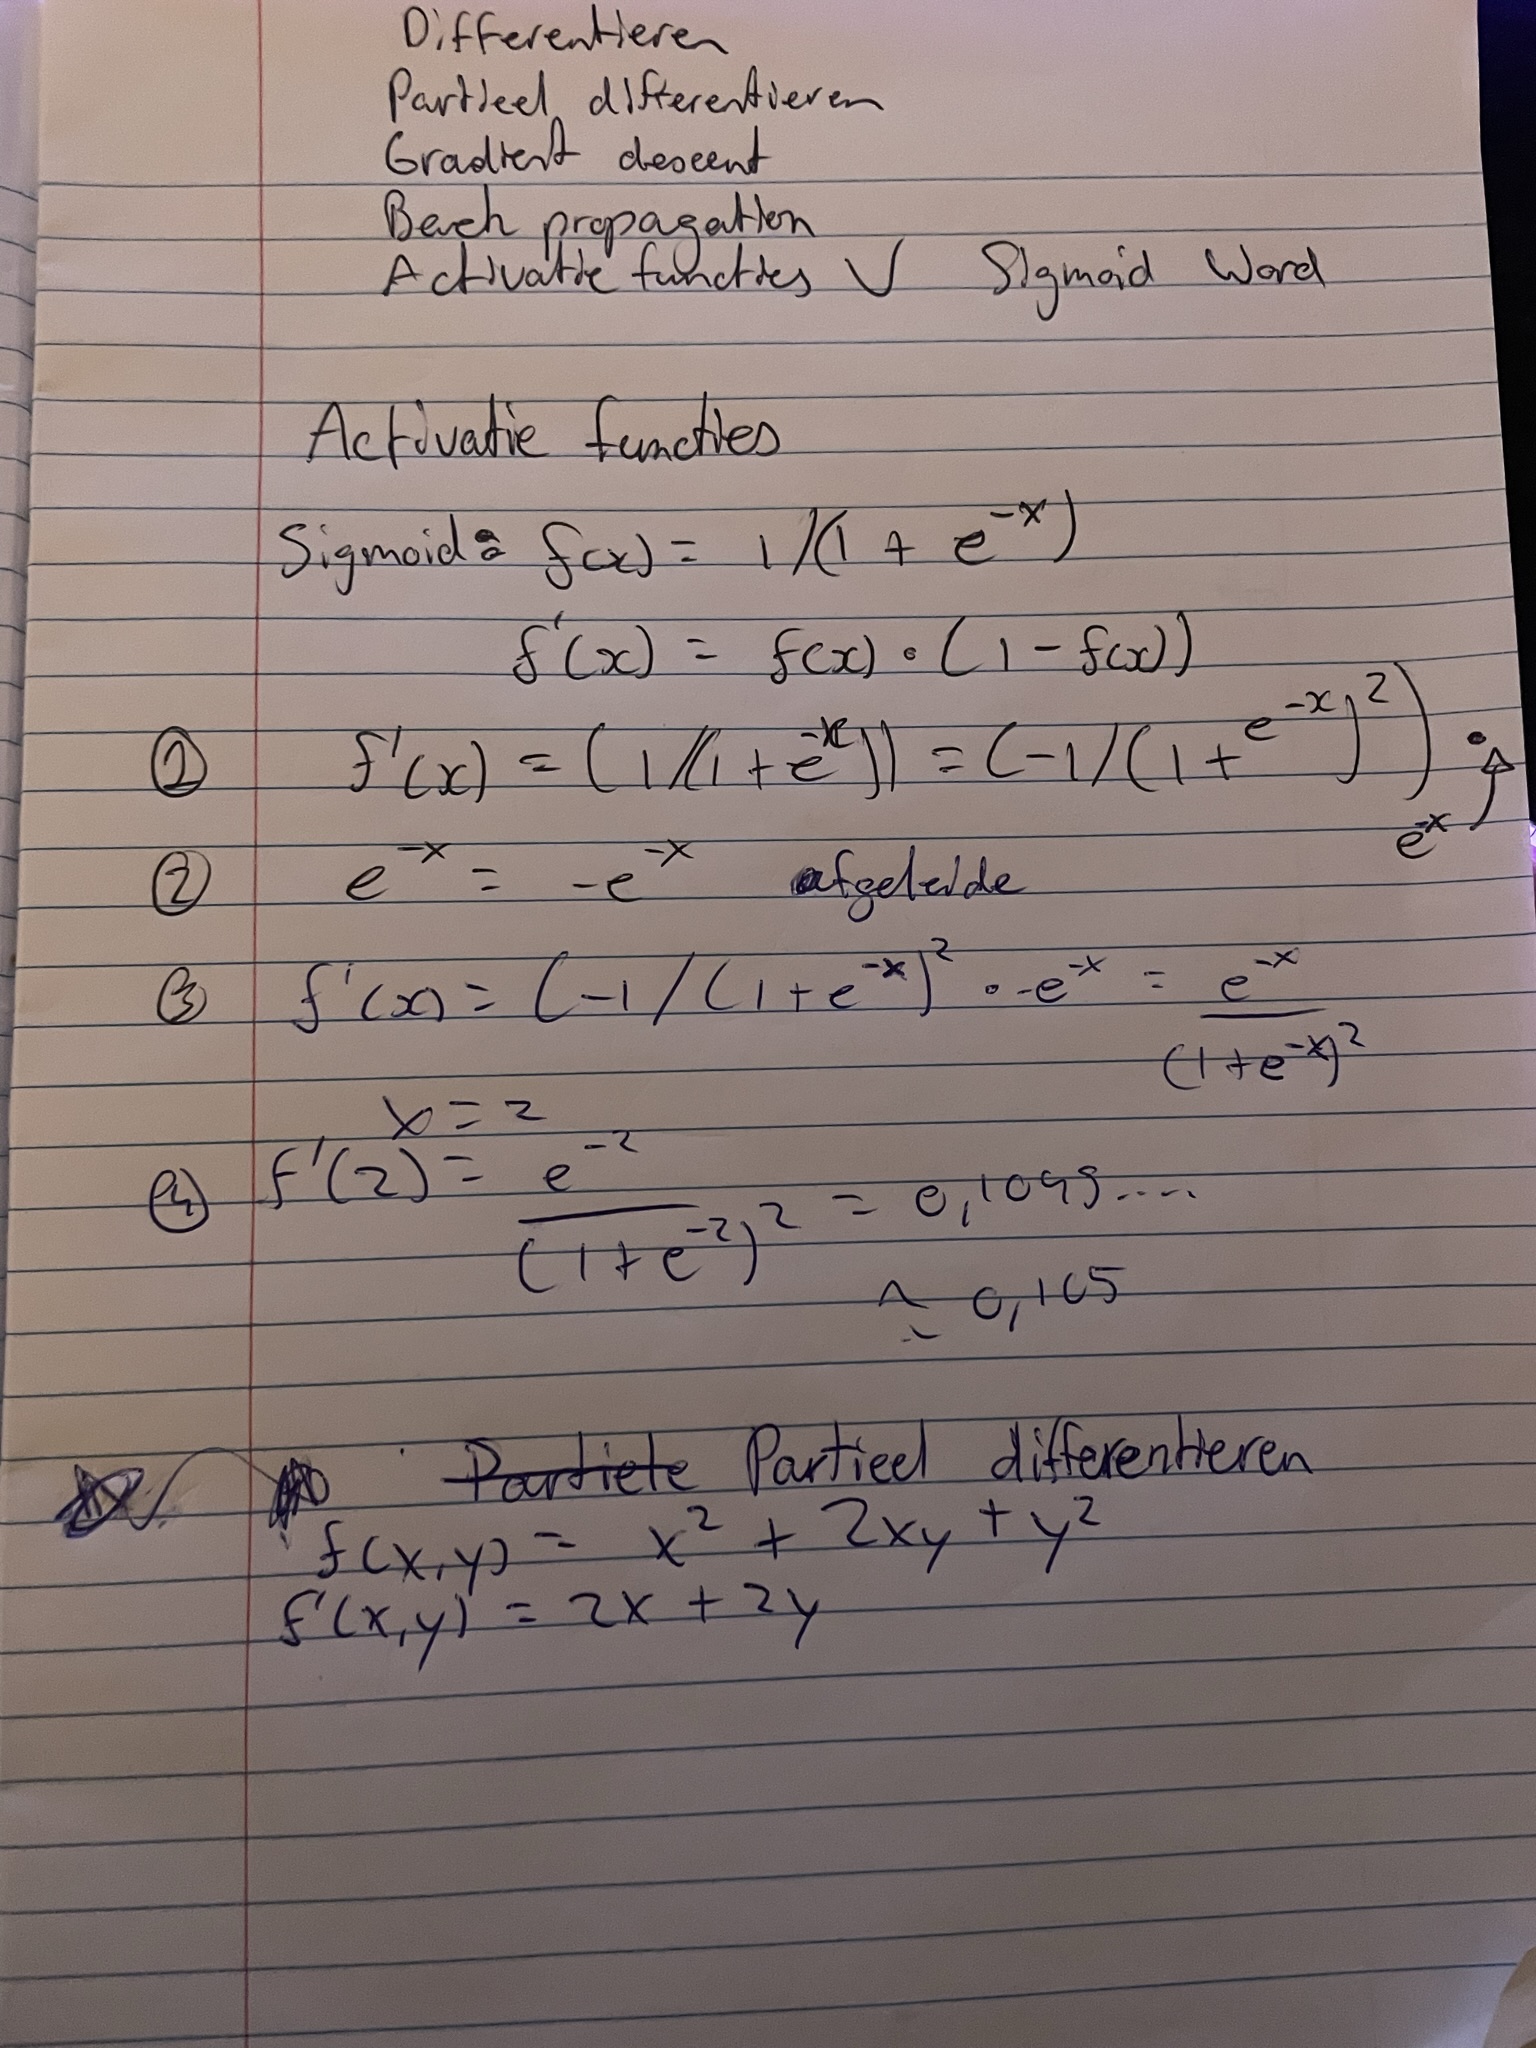 Differentieren
Partieel differentieren
Gradient descent
Back propagation
Activatie functies √ Sigmoid Word
Activatie functies
Sigmoid: f(x) = 1/(1 + e^-x)
f'(x) = f(x) • (1 - f(x))
① f'(x) = (1/(1+e^-x)) = (-1/(1+e^-x)^2) •
e^-x
② e^-x = -e^-x afgeleide
③ f'(x) = (-1/(1+e^-x)^2 • -e^-x = e^-x / (1+e^-x)^2
x = 2
④ f'(2) = e^-2 / (1+e^-2)^2 = 0,1049....
≈ 0,105
Partiele Partieel differentieren
f(x,y) = x^2 + 2xy + y^2
f'(x,y) = 2x + 2y